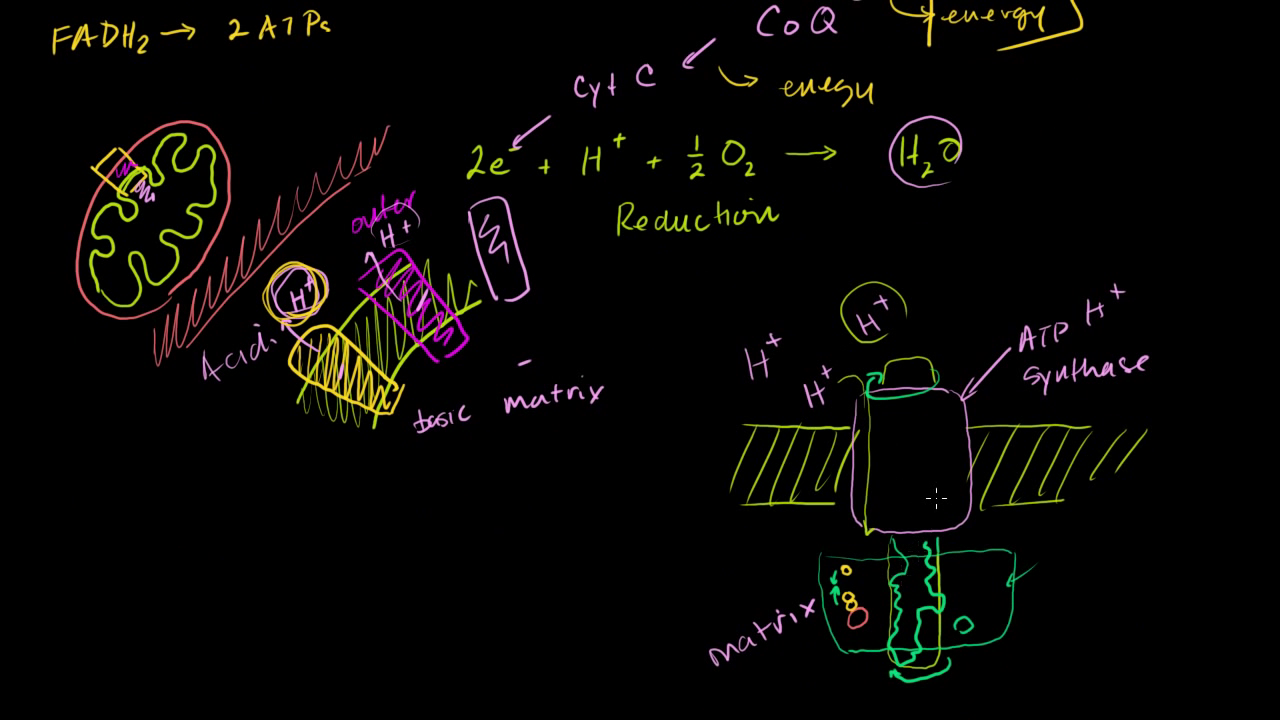 FADH₂ → 2 ATPs
CoQ → energy
Cyt C → energy
2e⁻ + H⁺ + ½ O₂ → H₂O
Reduction
outer
H⁺
H⁺
Acidi
basic matrix
H⁺
H⁺
H⁺
H⁺
ATP
synthase
matrix